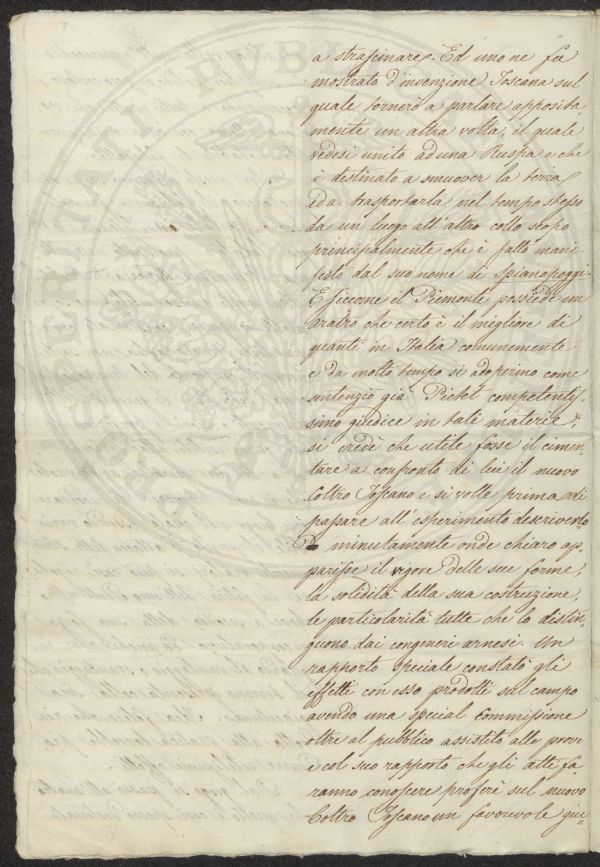 a strascinare. Ed uno ne fù
mostrato d'invenzione Toscana sul
quale tornerò a parlare apposita
mente un altra volta, il quale
vedesi unito ad una Ruspa e che
è destinato a smuover la terra
e da trasportarla nel tempo stesso
da un luogo all'altro collo scopo
principalmente che è fatto mani-
festo dal suo nome di Spianapoggi.
E siccome il Piemonte possiede un
aratro che certo è il migliore di
quanti in Italia comunemente
e da molto tempo si adoperino come
sentenziò già Pictet competentis-
simo giudice in tali materie,
si credè che utile fosse il cimen
tare a confronto di lui il nuovo
Coltro Toscano e si volle prima di
passare all'esperimento descriverlo
minutamente onde chiaro ap-
parisse il vigore delle sue forme,
la solidità della sua costruzione,
le particolarità tutte che lo distin-
guono dai congeneri arnesi. Un
rapporto speciale constatò gli
effetti con esso prodotti sul campo
avendo una special Commissione
oltre al pubblico assistito alle prove
e col suo rapporto che gli atti fa-
ranno conoscere proferì sul nuovo
Coltro Toscano un favorevole giu-
PROSPERITATI PVBLI